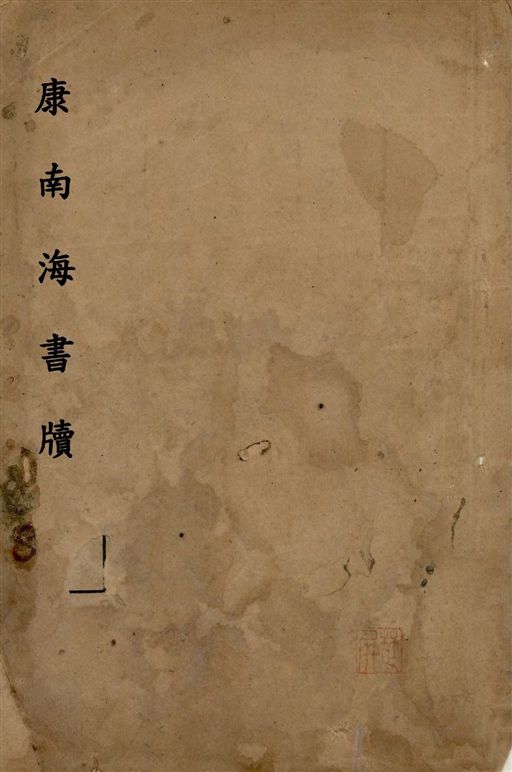 康南海書牘